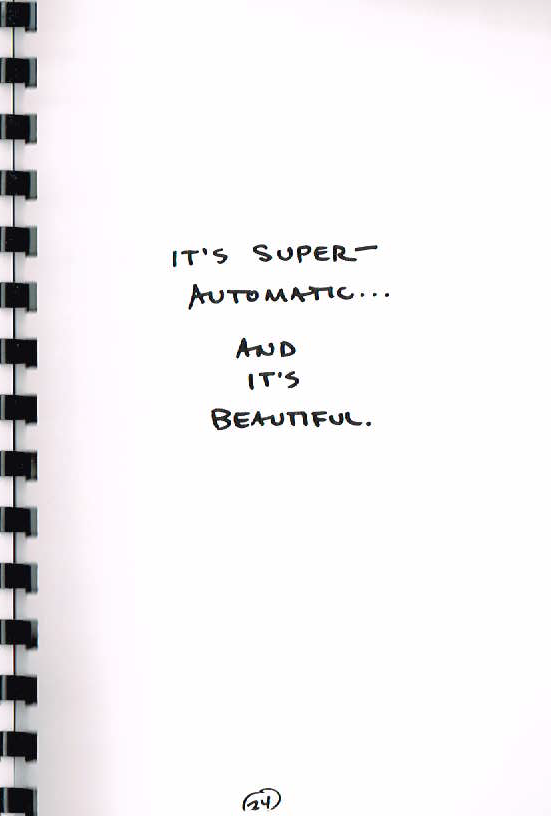 IT'S SUPER-
AUTOMATIC...
AND
IT'S
BEAUTIFUL.
24